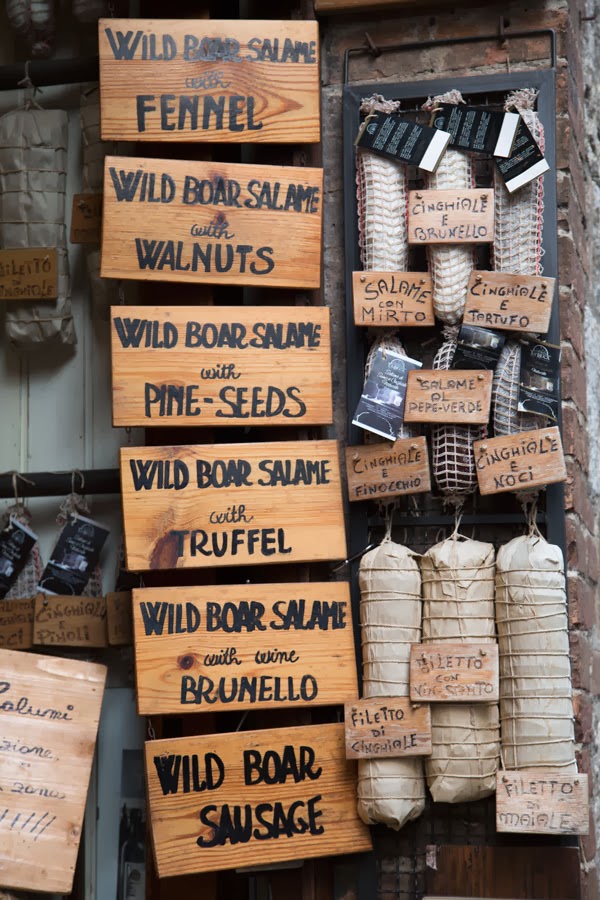 WILD BOAR SALAME
with
FENNEL
WILD BOAR SALAME
with
WALNUTS
WILD BOAR SALAME
with
PINE-SEEDS
WILD BOAR SALAME
with
TRUFFEL
WILD BOAR SALAME
with wine
BRUNELLO
WILD BOAR
SAUSAGE
CINGHIALE
E
BRUNELLO
SALAME
CON
MIRTO
CINGHIALE
E
TARTUFO
SALAME
AL
PEPE-VERDE
CINGHIALE
E
FINOCCHIO
CINGHIALE
E
NOCI
FILETTO
CON
VIN SANTO
FILETTO
DI
CINGHIALE
FILETTO
DI
MAIALE
FILETTO
CINGHIALE
E
PINOLI
Salumi